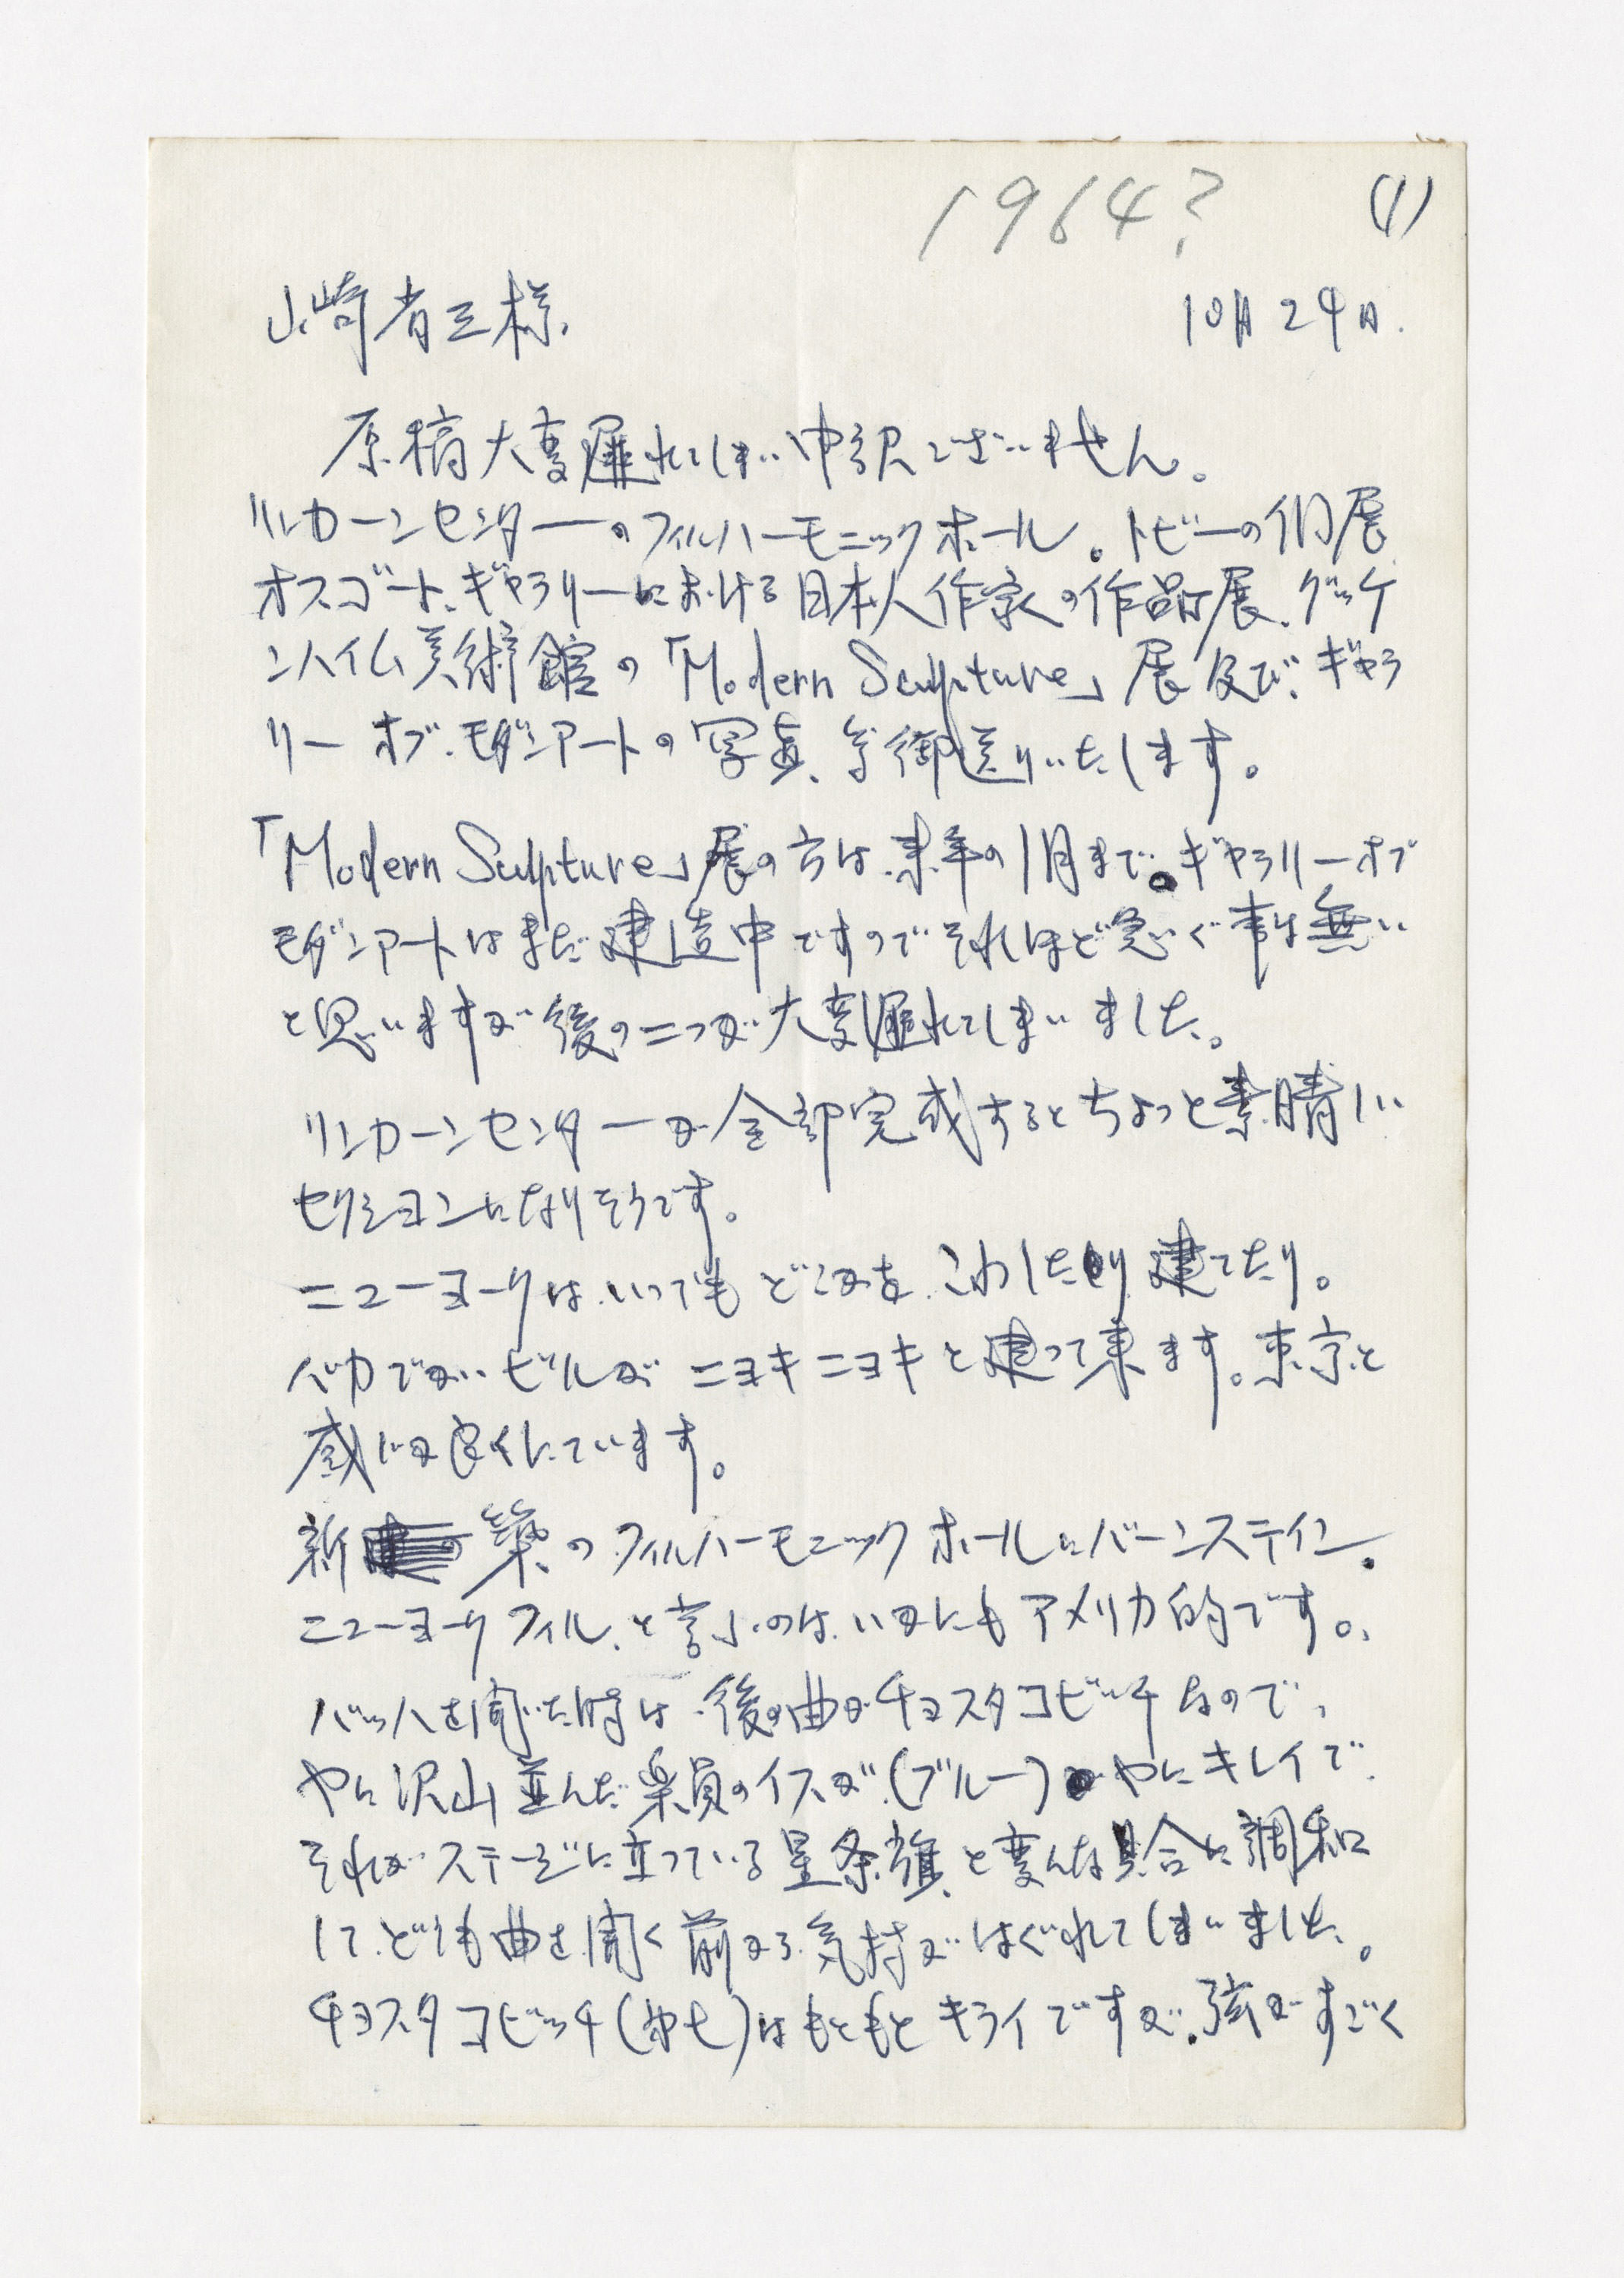 1964?
(1)
山崎省三様.
10月24日.
原稿大変遅れてしまい申訳ございません。
リンカーンセンターのフィルハーモニックホール。トビーの個展
オスゴート、ギャラリーにおける日本人作家の作品展、グッケ
ンハイム美術館の「Modern Sculpture」展及び、ギャラ
リーオブ.モダンアートの写真、等御送りいたします。
「Modern Sculpture」展の方は、来年の1月まで。ギャラリーオブ
モダンアートはまだ建造中ですのでそれほど急ぐ事は無い
と思いますが後の二つが大変遅れてしまいました。
リンカーンセンターが全部完成するとちょっと素晴しい
セクションになりそうです。
ニューヨークは、いつでもどこかを、こわしたり建てたり。
バカでかいビルがニョキニョキと建って来ます。東京と
感じが良くにています。
新築のフィルハーモニックホールにバーンスティン。
ニューヨークフィル、と言うのは、いかにもアメリカ的です。
バッハを聞いた時は、後の曲がチョスタコビッチなので、
やに沢山並んだ楽員のイスが(ブルー)やにキレイで、
それがステージに立っている星条旗と変んな具合に調和
して、どうも曲を聞く前から気持がはぐれてしまいました。
チョスタコビッチ()はもともとキライですが、弦がすごく